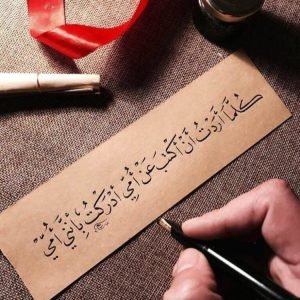 كُلَّمَا أَرَدْتُ أَنْ أَكْتُبَ عَنْ أُمِّي أَدْرَكْتُ بِأَنَّنِي أُمِّيٌّ